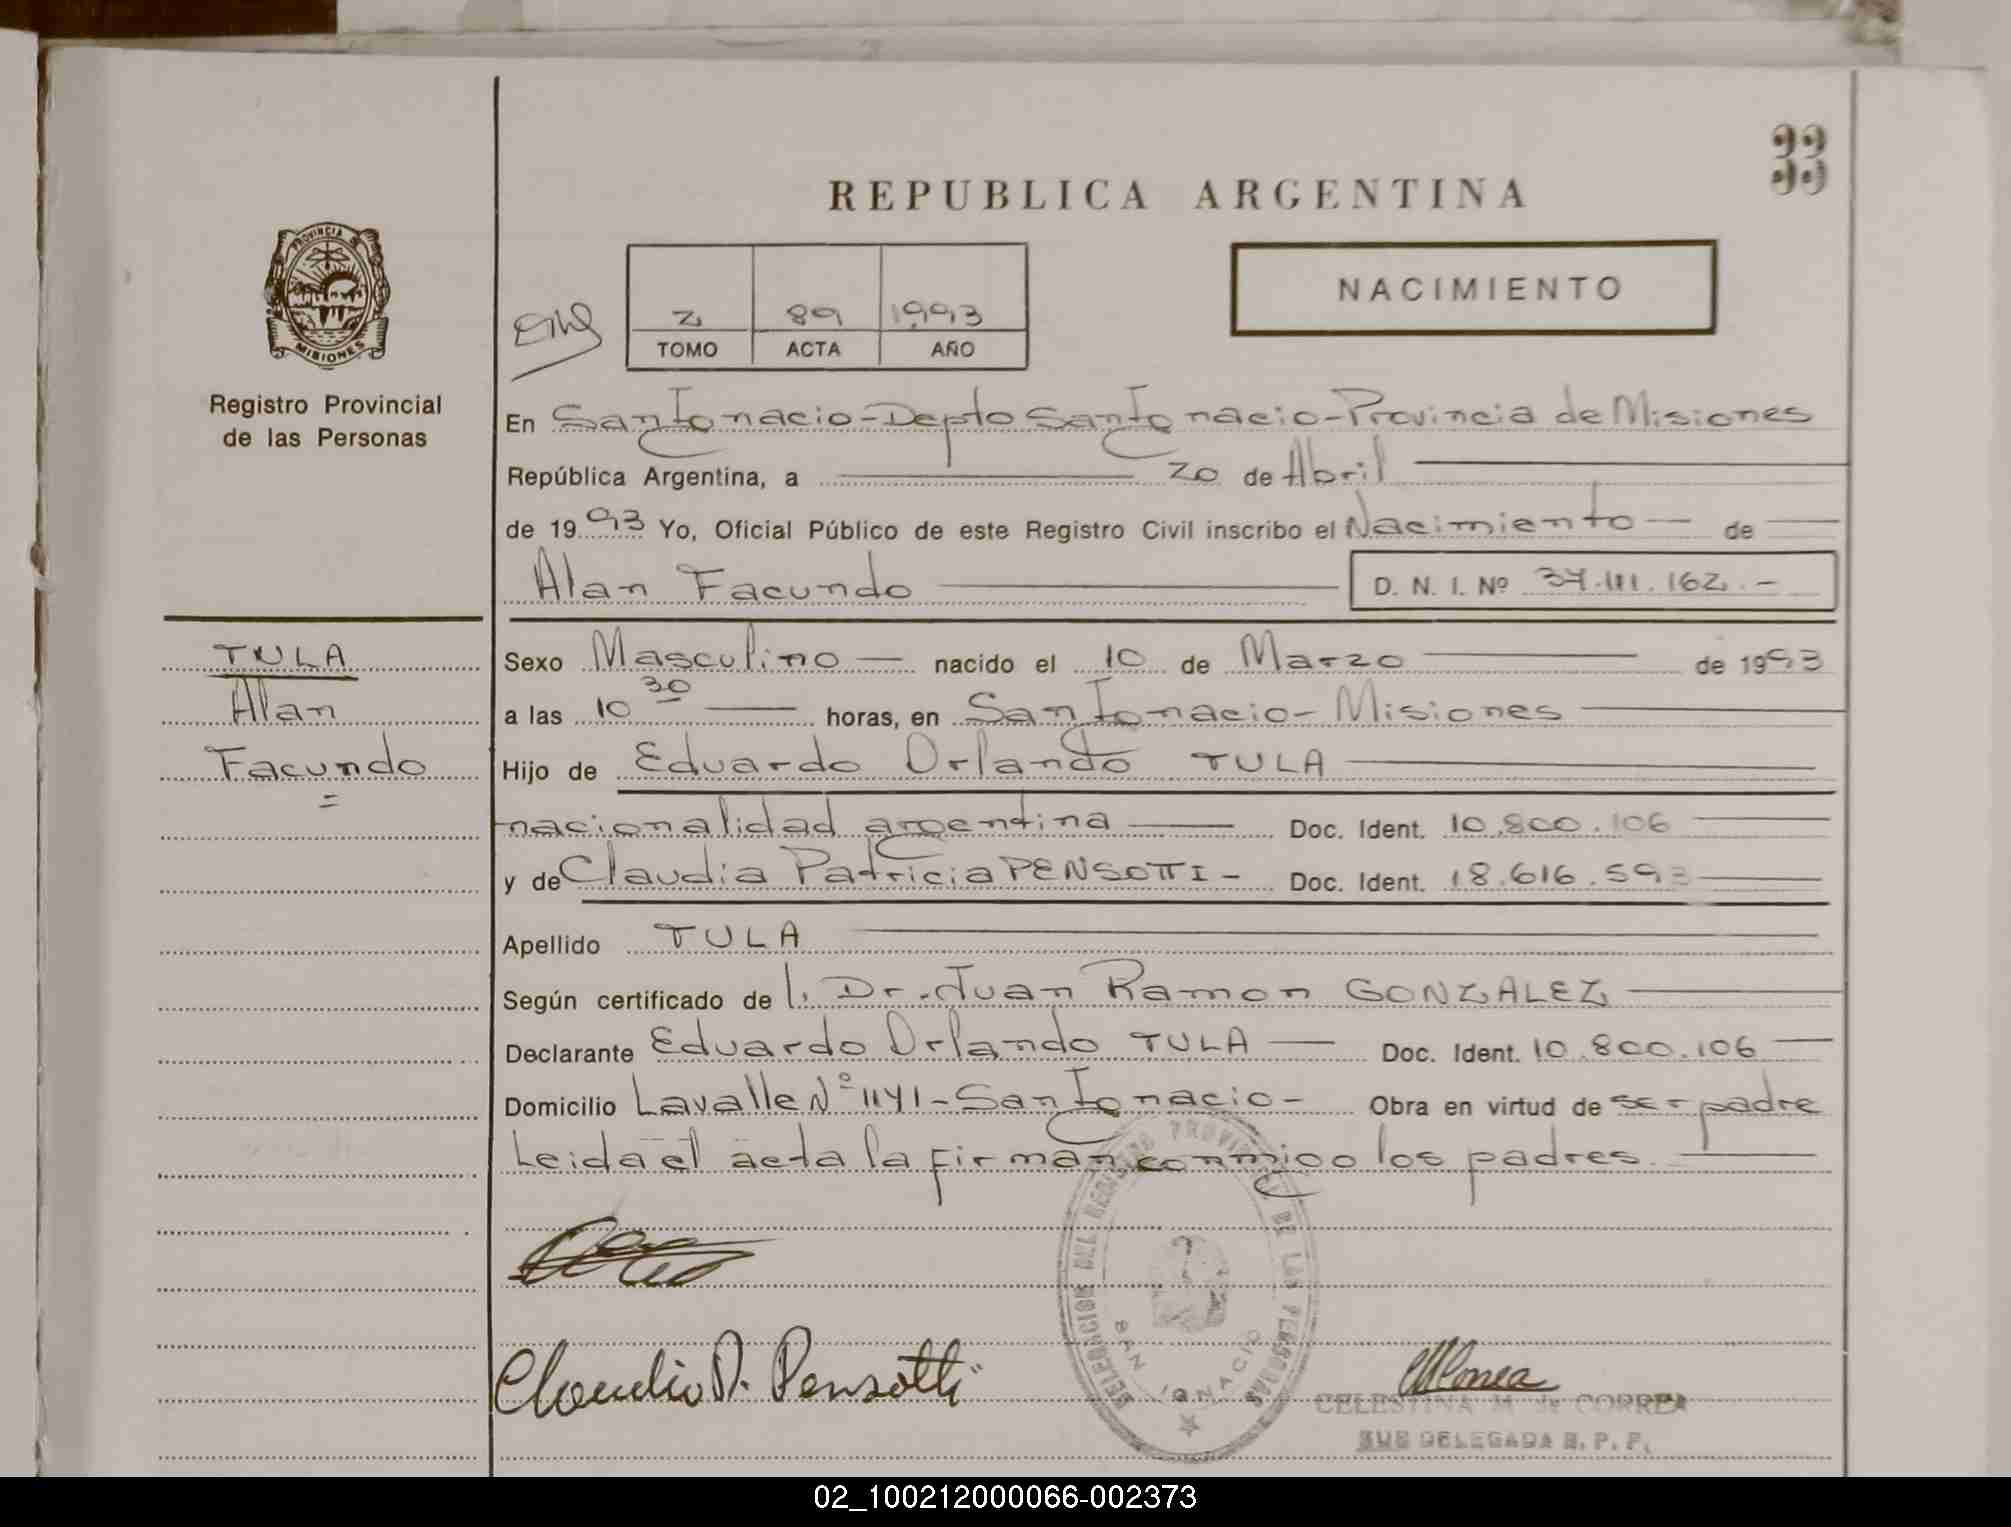 33
REPUBLICA ARGENTINA
PROVINCIA DE
MISIONES
NACIMIENTO
2 89 1993
TOMO ACTA AÑO
Registro Provincial
de las Personas
En San Ignacio-Depto San Ignacio-Provincia de Misiones
República Argentina, a 20 de Abril
de 1993 Yo, Oficial Público de este Registro Civil inscribo el Nacimiento de
Alan Facundo D. N. I. Nº 37.111.162.-
TULA
Alan
Facundo
Sexo Masculino nacido el 10 de Marzo de 1993
a las 10 30 horas, en San Ignacio- Misiones
Hijo de Eduardo Orlando TULA
nacionalidad argentina Doc. Ident. 10.800.106
y de Claudia Patricia PENSOTTI - Doc. Ident. 18.616.593
Apellido TULA
Según certificado de l. Dr. Juan Ramon GONZALEZ
Declarante Eduardo Orlando TULA Doc. Ident. 10.800.106
Domicilio Lavalle Nº 1141-San Ignacio- Obra en virtud de ser padre
Leida el acta la firman conmigo los padres.
DELEGACION DEL REGISTRO PROVINCIAL DE LAS PERSONAS
SAN IGNACIO
Claudia P. Pensotti
CELESTINA M. de CORREA
SUB DELEGADA R. P. P.
02_100212000066-002373